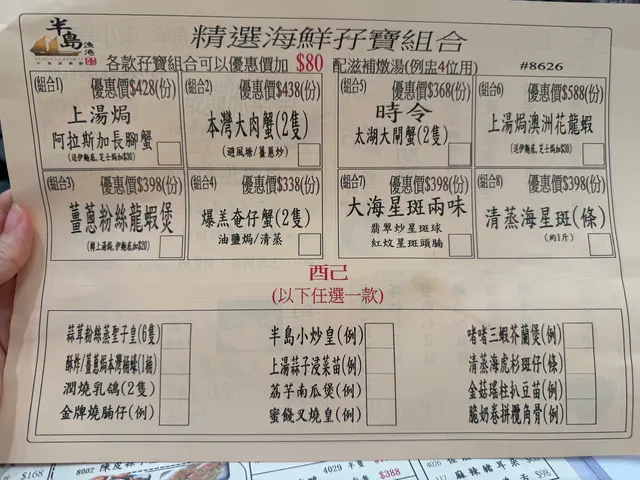 半島
漁港
精選海鮮孖寶組合
各款孖寶組合可以優惠價加 $80 配滋補燉湯(例盅4位用)
#8626
(組合1) 優惠價$428(份)
上湯焗
阿拉斯加長腳蟹
(送伊麵底,芝士焗加$30)
(組合2) 優惠價$438(份)
本灣大肉蟹(2隻)
(避風塘/薑蔥炒)
(組合5) 優惠價$368(份)
時令
太湖大閘蟹(2隻)
(組合6) 優惠價$588(份)
上湯焗澳洲花龍蝦
(送伊麵底,芝士焗加$30)
(組合3) 優惠價$398(份)
薑蔥粉絲龍蝦煲
(轉上湯焗,伊麵底加$20)
(組合4) 優惠價$338(份)
爆羔奄仔蟹(2隻)
油鹽焗/清蒸
(組合7) 優惠價$398(份)
大海星斑兩味
翡翠炒星斑球
紅炆星斑頭腩
(組合8) 優惠價$398(份)
清蒸海星斑(條)
(約1斤)
酉己
(以下任選一款)
蒜茸粉絲蒸聖子皇(6隻)
酥炸/薑蔥焗本灣桶蠔(1桶)
潤燒乳鴿(2隻)
金牌燒腩仔(例)
半島小炒皇(例)
上湯蒜子浸菜苗(例)
荔芋南瓜煲(例)
蜜餞叉燒皇(例)
啫啫三蝦芥蘭煲(例)
清蒸海虎杉斑仔(條)
金菇瑤柱扒豆苗(例)
脆奶卷拼欖角骨(例)
$168
8002
4029
$388
4026
麻辣豬耳朵